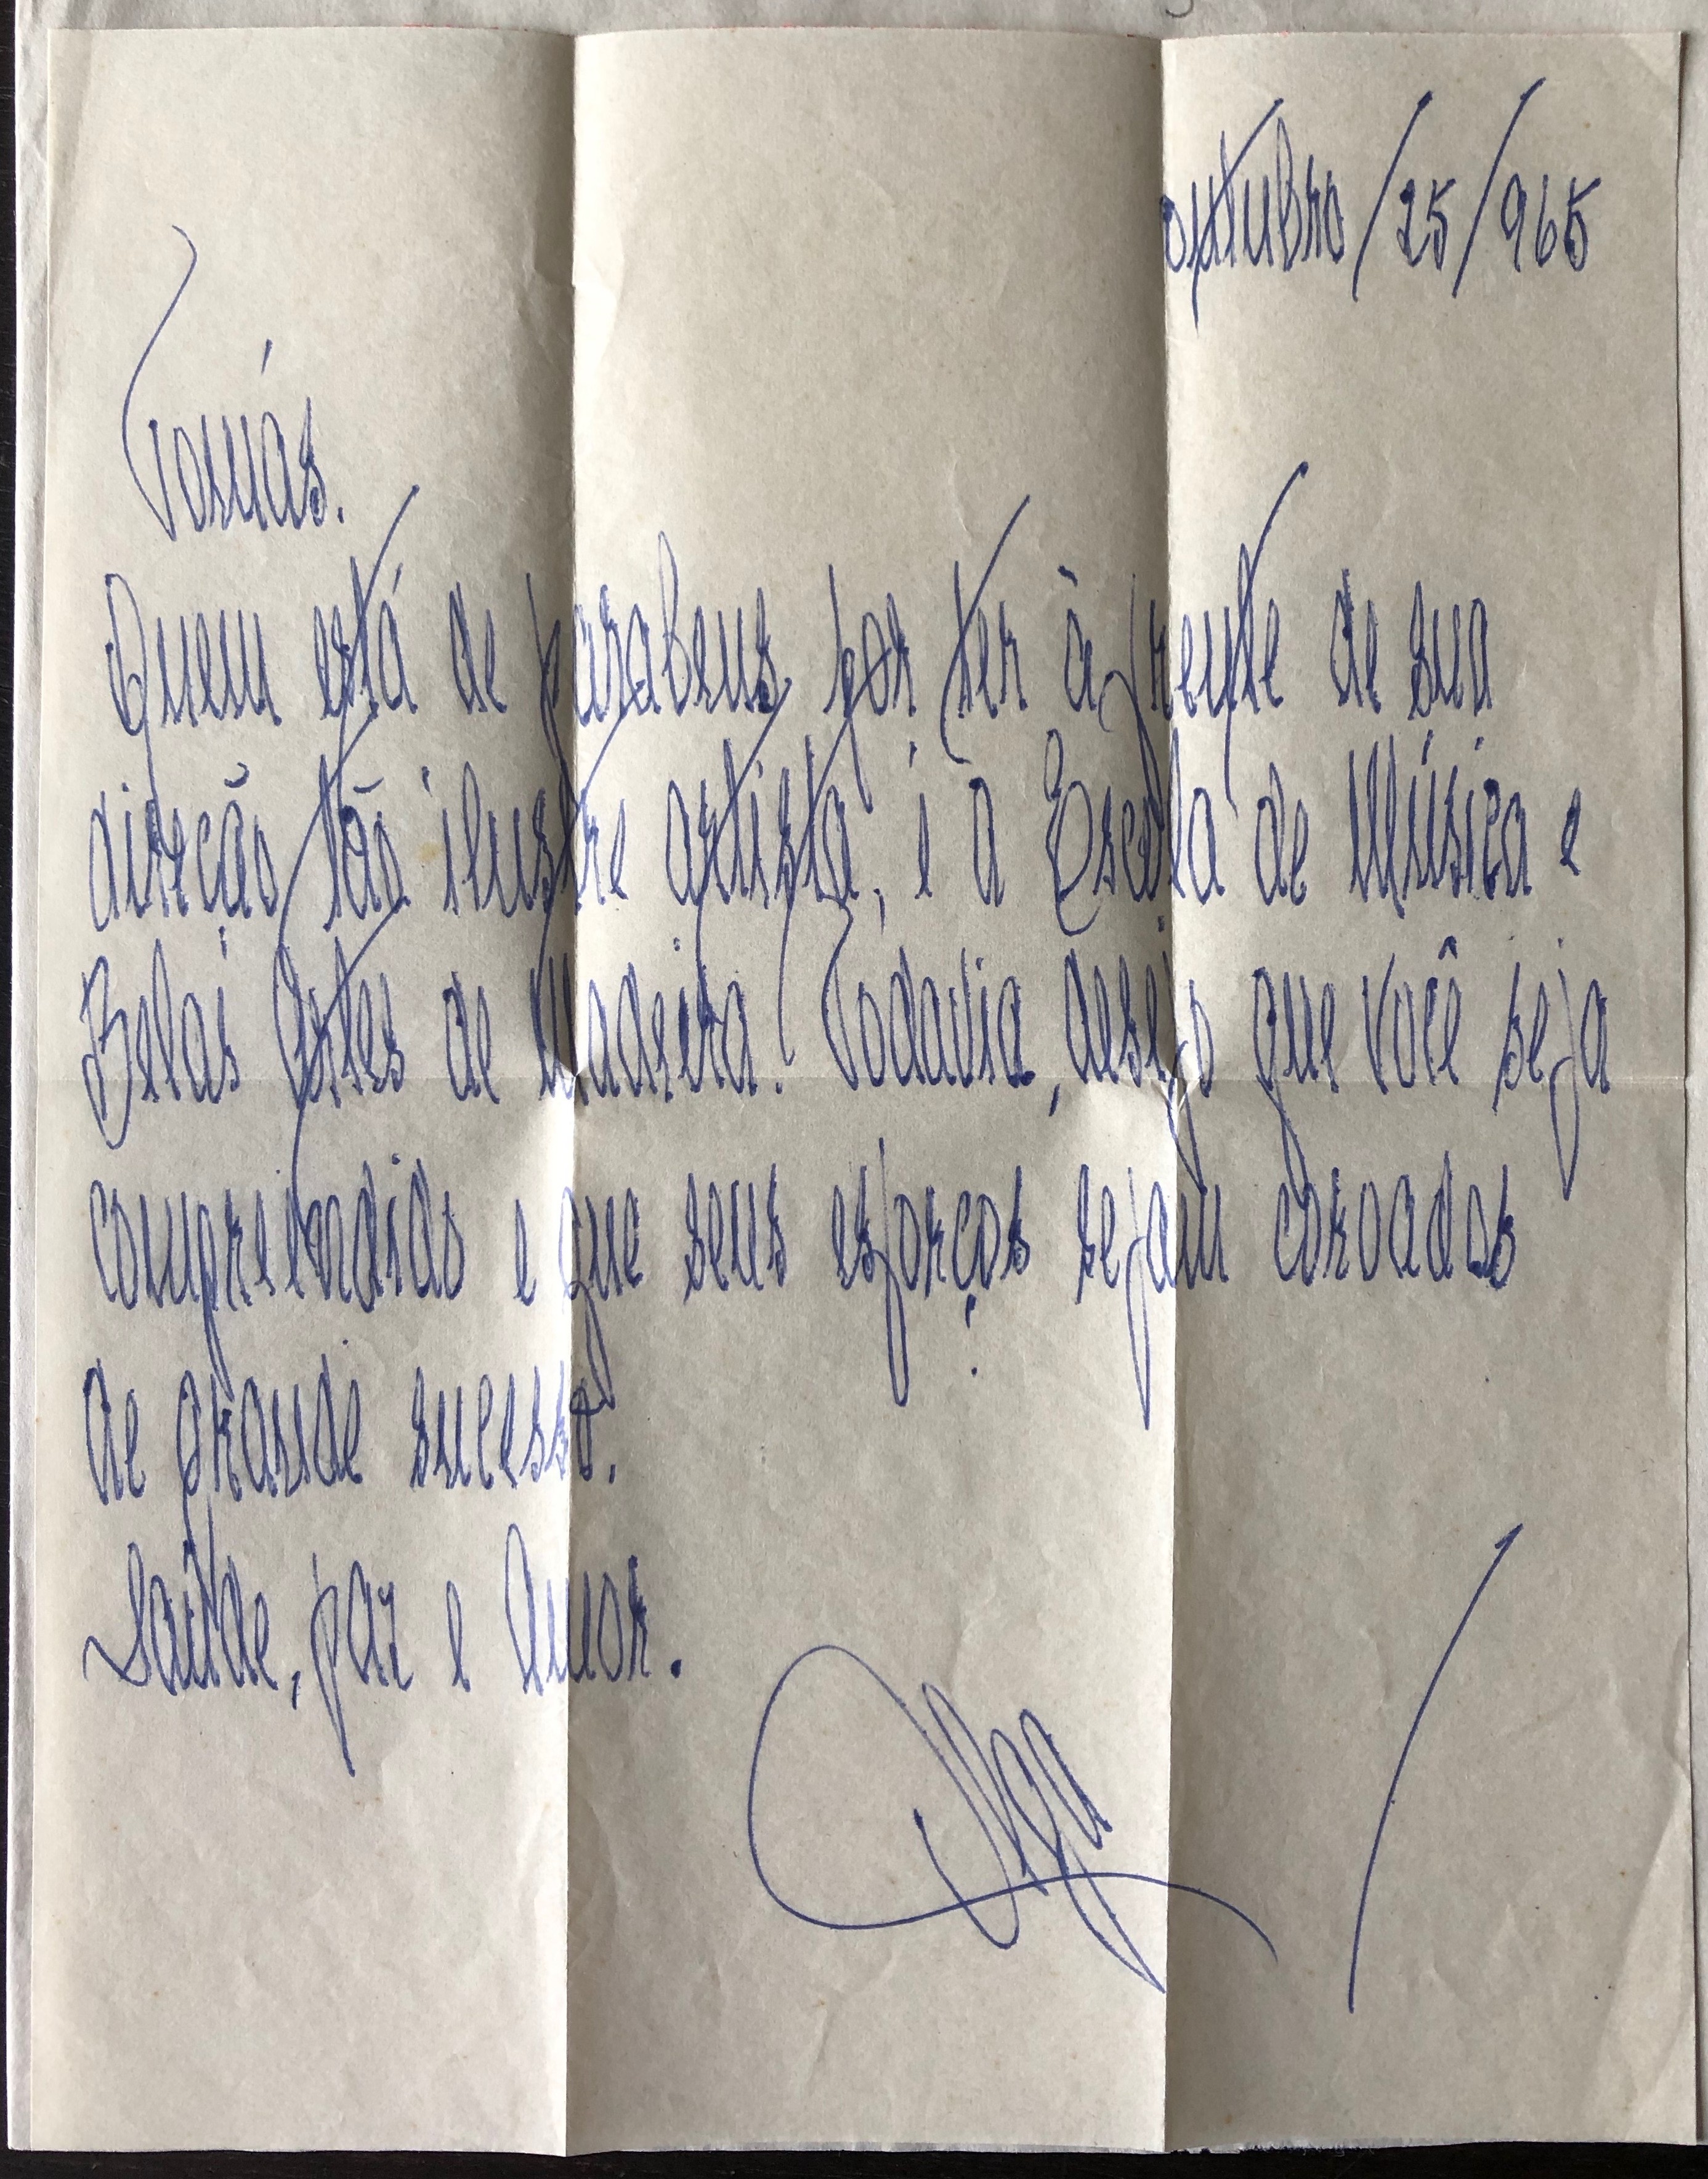 outubro/25/965
Tomás.
Quem está de parabens por ter à frente de sua
direcão tão ilustre artista, é a Escola de Música e
Belas Artes de Madeira! Todavia, desejo que você seja
compreendido e que seus esforços sejam coroados
de grande sucesso.
Saúde, paz e Amor.
Olga